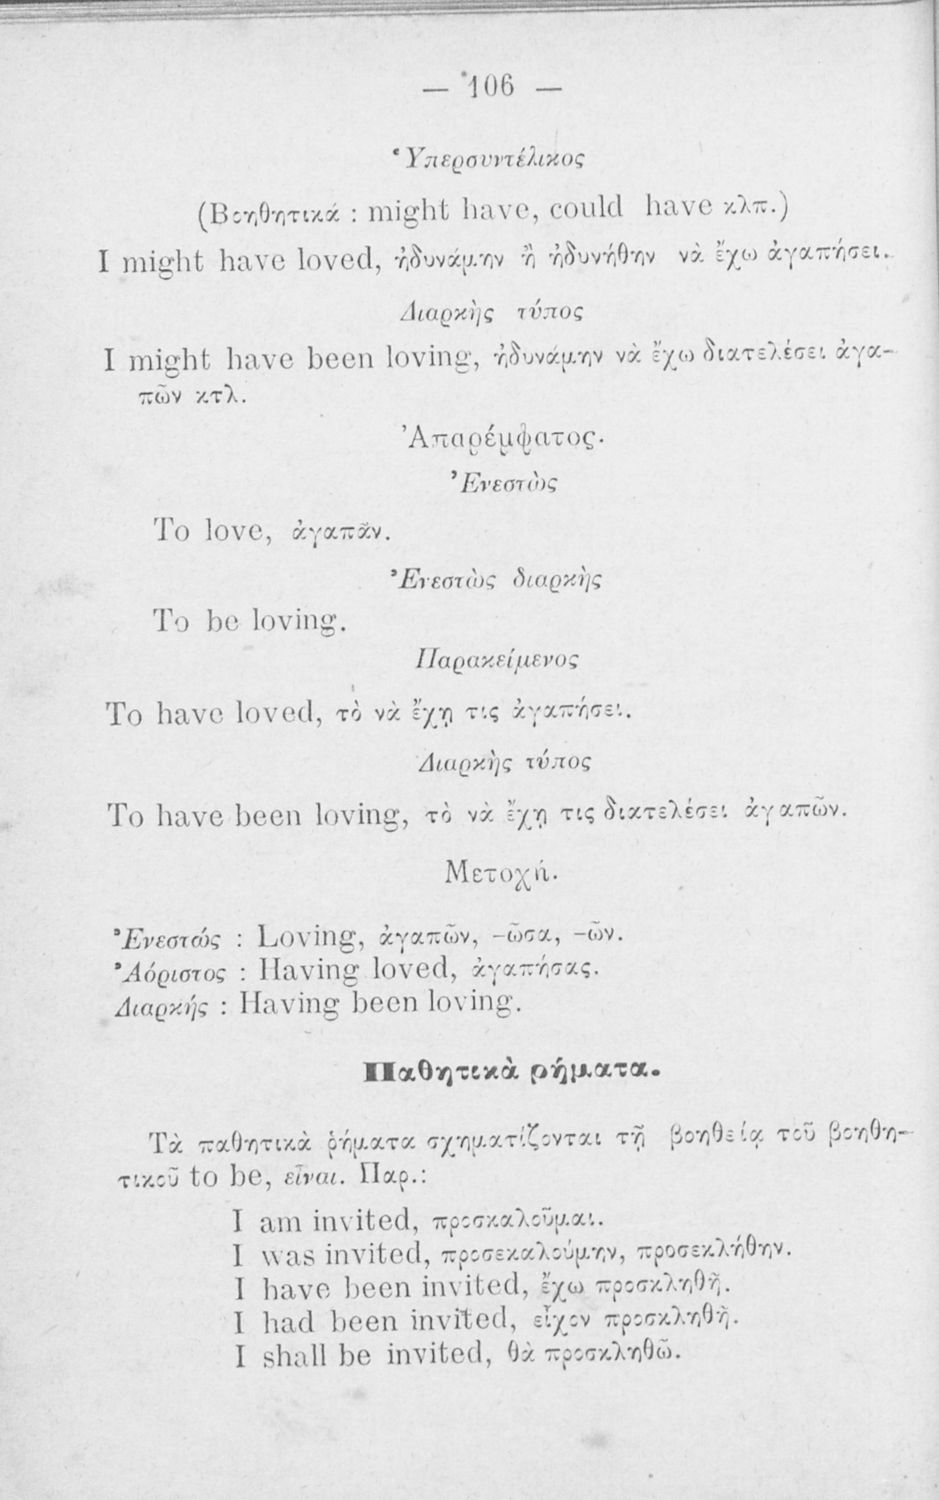 — 106 —
Ὑπερσυντέλικος
(Βοηθητικά : might have, could have κλπ.)
I might have loved, ἠδυνάμην ἢ ἠδυνήθην νὰ ἔχω ἀγαπήσει.
Διαρκὴς τύπος
I might have been loving, ἠδυνάμην νὰ ἔχω διατελέσει ἀγα-
πῶν κτλ.
Ἀπαρέμφατος.
Ἐνεστὼς
To love, ἀγαπᾶν.
Ἐνεστὼς διαρκὴς
To be loving.
Παρακείμενος
To have loved, τὸ νὰ ἔχῃ τις ἀγαπήσει.
Διαρκὴς τύπος
To have been loving, τὸ νὰ ἔχῃ τις διατελέσει ἀγαπῶν.
Μετοχή.
Ἐνεστώς : Loving, ἀγαπῶν, -ῶσα, -ῶν.
Ἀόριστος : Having loved, ἀγαπήσας.
Διαρκής : Having been loving.
Παθητικὰ ρήματα.
Τὰ παθητικὰ ῥήματα σχηματίζονται τῇ βοηθείᾳ τοῦ βοηθη-
τικοῦ to be, εἶναι. Παρ.:
I am invited, προσκαλοῦμαι.
I was invited, προσεκαλούμην, προσεκλήθην.
I have been invited, ἔχω προσκληθῆ.
I had been invited, εἶχον προσκληθῆ.
I shall be invited, θὰ προσκληθῶ.